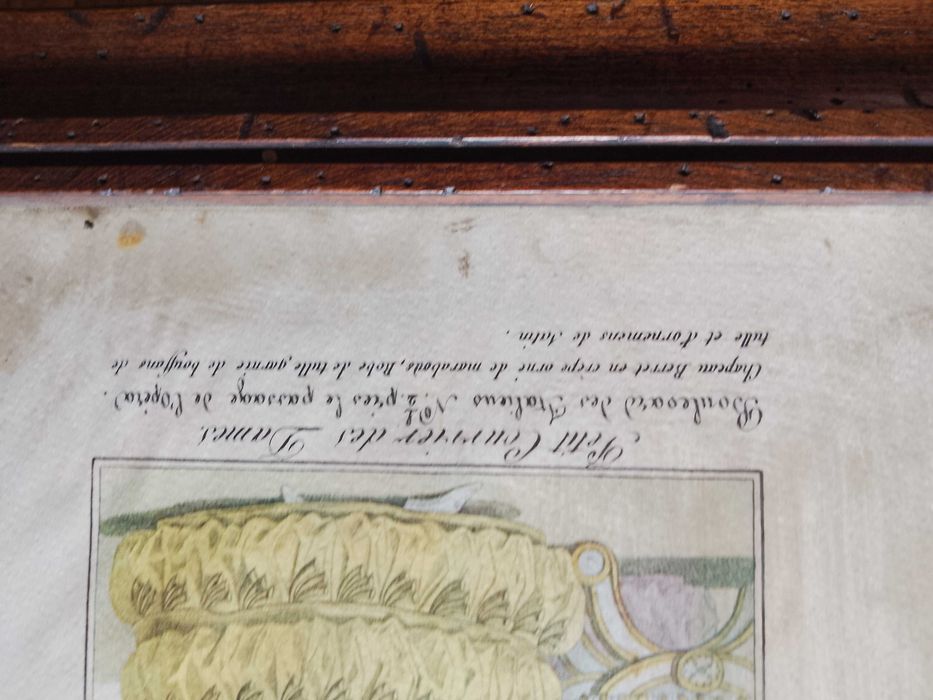 Petit Courrier des Dames.
Boulevard des Italiens N° 2. près le passage de l'Opéra.
Chapeau Berret en crêpe orné de marabouts, Robe de tulle, garnie de bouffans de
tulle et d'ornemens de Satin.